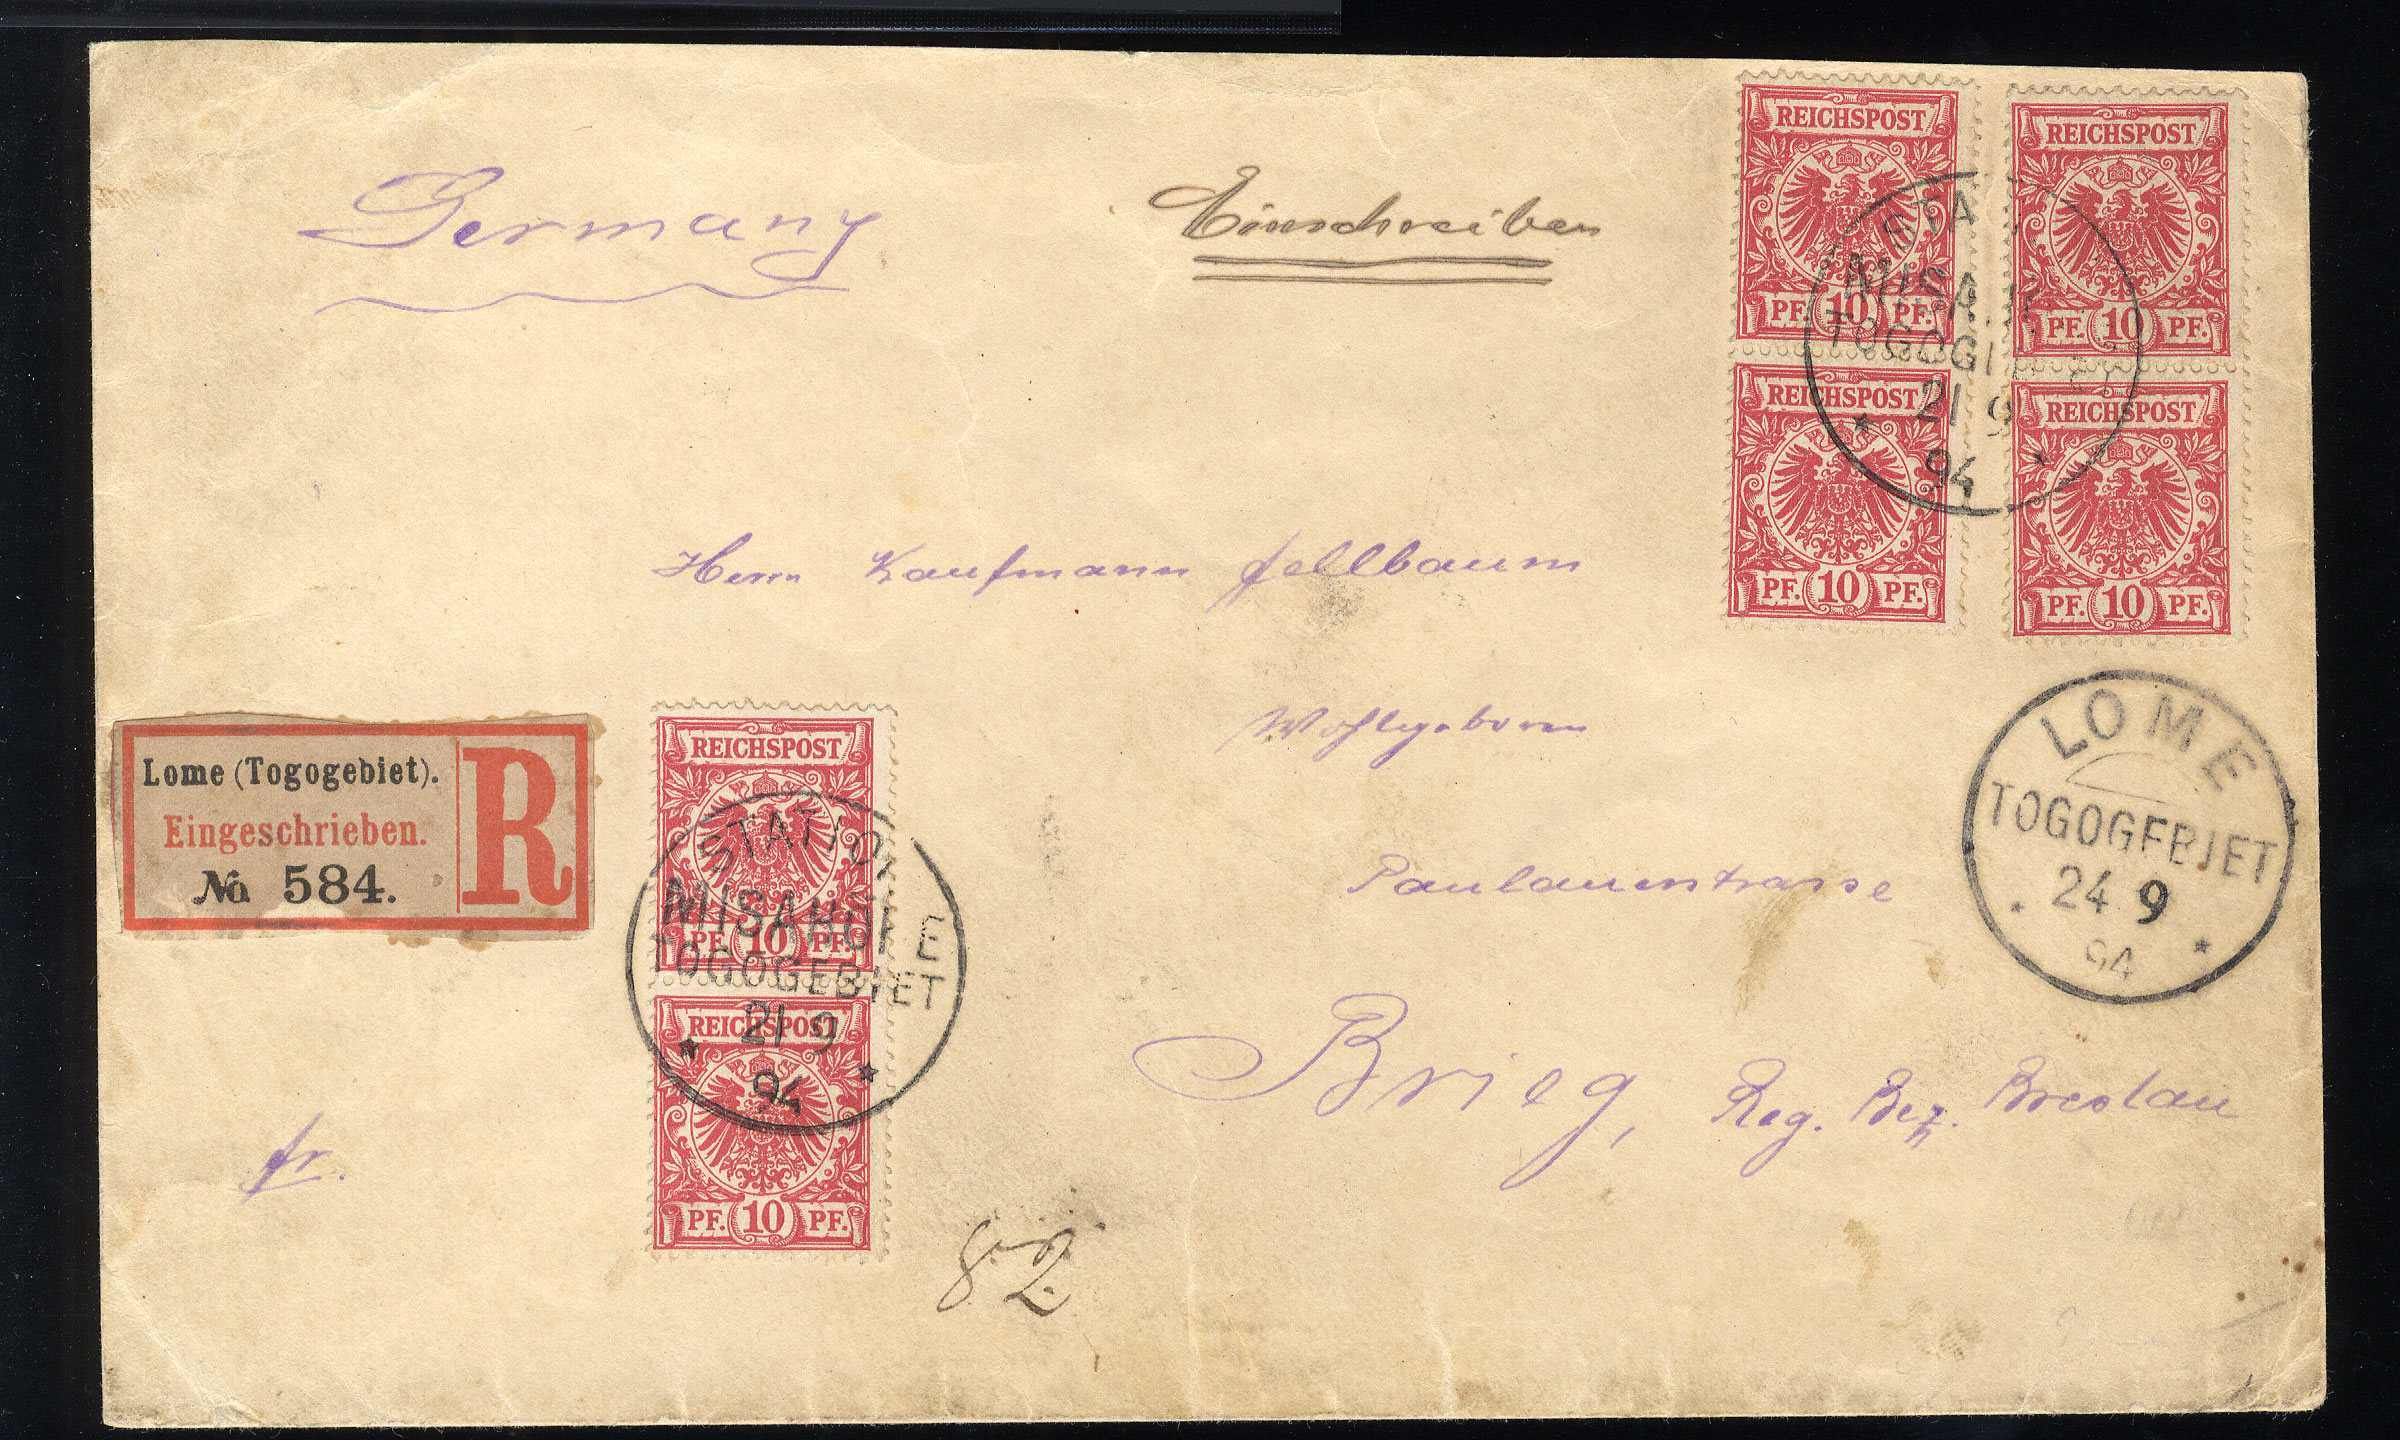 Germany
Einschreiben
REICHSPOST
PF. 10 PF.
REICHSPOST
PF. 10 PF.
REICHSPOST
PF. 10 PF.
REICHSPOST
PF. 10 PF.
21 9
94
Herrn Kaufmann Fellbaum
Wohlgeboren
Paulauerstrasse
Brieg, Reg. Bez. Breslau
LOME
TOGOGEBIET
24 9
94
Lome (Togogebiet).
Eingeschrieben.
No 584.
R
REICHSPOST
PF. 10 PF.
REICHSPOST
PF. 10 PF.
STATION
MISAHÖHE
TOGOGEBIET
21 9
94
fr.
82